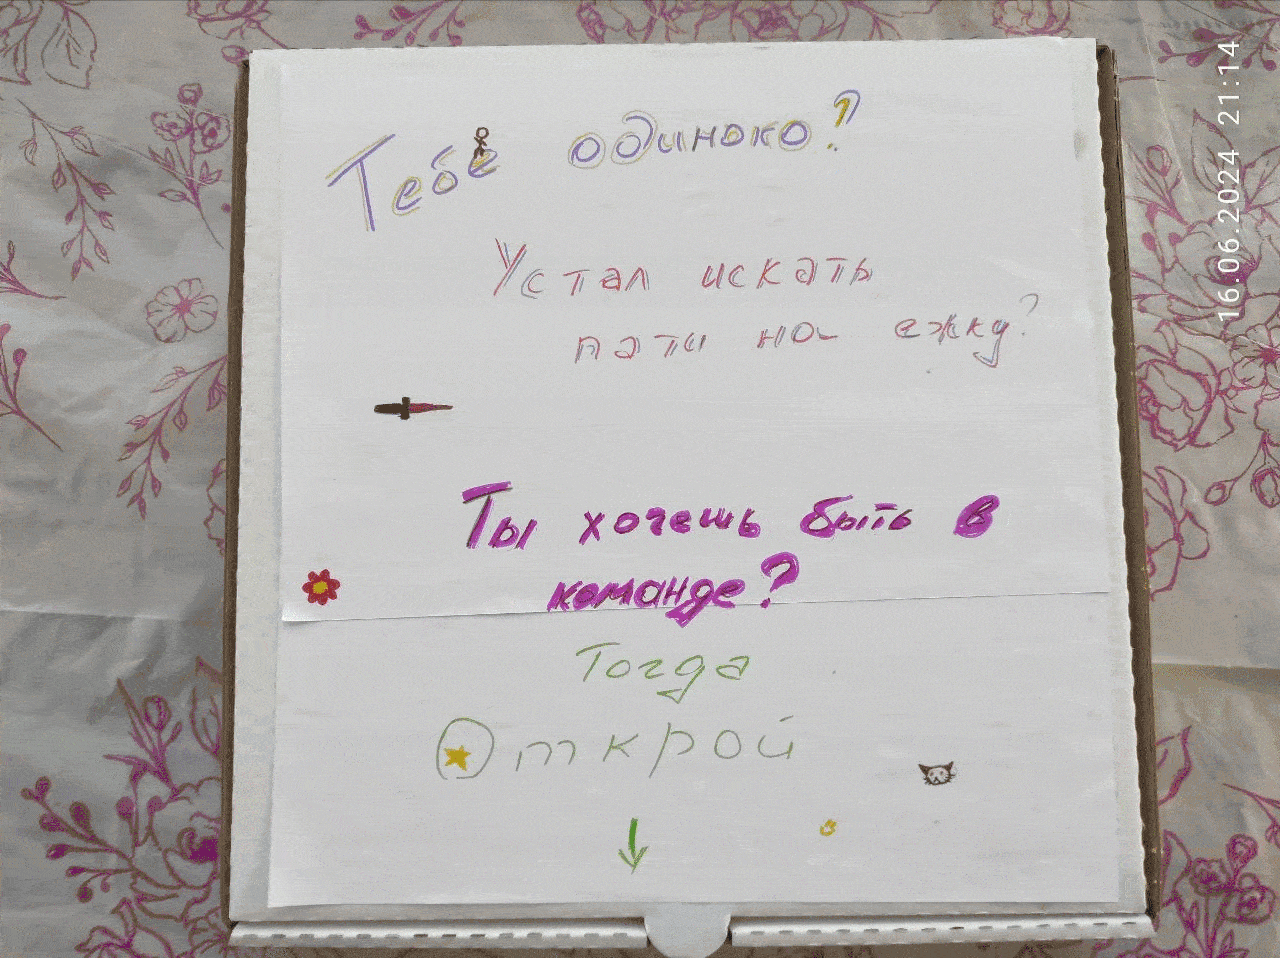 Тебе одиноко?
Устал искать
пати на ежку?
Ты хочешь быть в
команде?
Тогда
Открой
16.06.2024 21:14